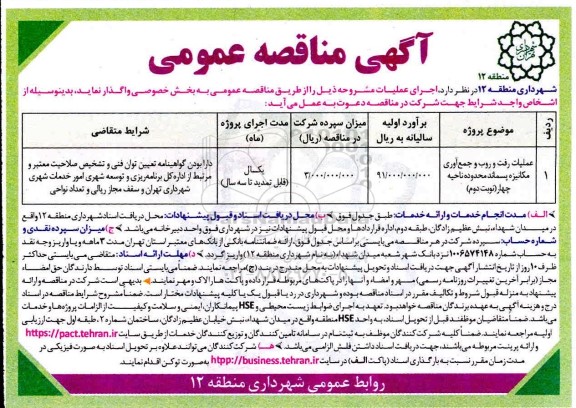 آگهی مناقصه عمومی
منطقه ۱۲
شهرداری منطقه ۱۲ در نظر دارد، اجرای عملیات مشروحه ذیل را از طریق مناقصه عمومی به بخش خصوصی واگذار نماید، بدینوسیله از
اشخاص واجد شرایط جهت شرکت در مناقصه دعوت به عمل می آید:
ردیف
موضوع پروژه
برآورد اولیه سالیانه به ریال
میزان سپرده شرکت در مناقصه (ریال)
مدت اجرای پروژه (ماه)
شرایط متقاضی
۱
عملیات رفت و روب و جمع آوری مکانیزه پسماند محدوده ناحیه چهار (نوبت دوم)
۹۱/۰۰۰/۰۰۰/۰۰۰
۳/۰۰۰/۰۰۰/۰۰۰
یکسال (قابل تمدید تا سه سال)
دارا بودن گواهینامه تعیین توان فنی و تشخیص صلاحیت معتبر و مرتبط از اداره کل برنامه ریزی و توسعه شهری امور خدمات شهری شهرداری تهران و سقف مجاز ریالی و تعداد نواحی
الف) مدت انجام خدمات و ارائه خدمات: طبق جدول فوق ب) محل دریافت اسناد و قبول پیشنهادات: محل دریافت اسناد شهرداری منطقه ۱۲ واقع
در میدان شهداء، نبش عظیم زادگان، طبقه دوم، اداره قراردادها و محل قبول پیشنهادات نیز در شهرداری فوق واحد دبیرخانه می باشد. ج) میزان سپرده نقدی و
شماره حساب: سپرده شرکت در هر مناقصه می بایستی بر اساس جدول فوق، ارائه ضمانتنامه بانکی از بانک های معتبر استان تهران مدت ۳ ماهه و یا واریز وجه نقد
به حساب شماره ۱۰۰۶۵۷۴۱۴۸ نزد بانک شهر شعبه میدان شهداء به نام شهرداری منطقه ۱۲ واریز گردد. د) مهلت ارائه اسناد: متقاضی می بایستی حداکثر
ظرف ۱۰ روز از تاریخ انتشار آگهی جهت دریافت اسناد و تحویل پیشنهادات به
مجاز (برابر آخرین تغییرات روزنامه رسمی) مهر و امضاء و اسناد را در پاکت های مربوطه قرار داده و پاکت ها را لاک و مهر نمایند. بدیهی است شرکت در مناقصه و ارائه
پیشنهاد به منزله قبول شروط و تکالیف مقرر در اسناد مناقصه بوده و شهرداری در رد یا قبول یک یا کلیه پیشنهادات مختار است. ضمناً مشروح شرایط مناقصه در اسناد
درج و هزینه آگهی به عهده برندگان مناقصه خواهد بود. تعهد به اجرای ضوابط زیست محیطی و HSE پیمانکاران، ایمنی و سلامت و کیفیت از الزامات پروژه ها و خدمات
می باشد. ضمناً متقاضیان موظفند قبل از تحویل اسناد به واحد HSE منطقه واقع در میدان شهداء، نبش خیابان عظیم زادگان، ساختمان شماره ۲، طبقه اول جهت ارزیابی
اولیه مراجعه نمایند. ضمناً کلیه شرکت کنندگان موظف به ثبت نام در سامانه تامین کنندگان و توزیع کنندگان خدمات از طریق سایت https://pact.tehran.ir
و ارائه پرینت مربوطه می باشند، جهت دریافت اسناد داشتن فلش الزامی می باشد. ه) شرکت کنندگان می توانند علاوه بر تحویل اسناد به صورت فیزیکی در
مدت زمان مقرر نسبت به بارگذاری اسناد (پاکت الف) در سایت htpp://business.tehran.ir به صورت توکن اقدام نمایند.
روابط عمومی شهرداری منطقه ۱۲